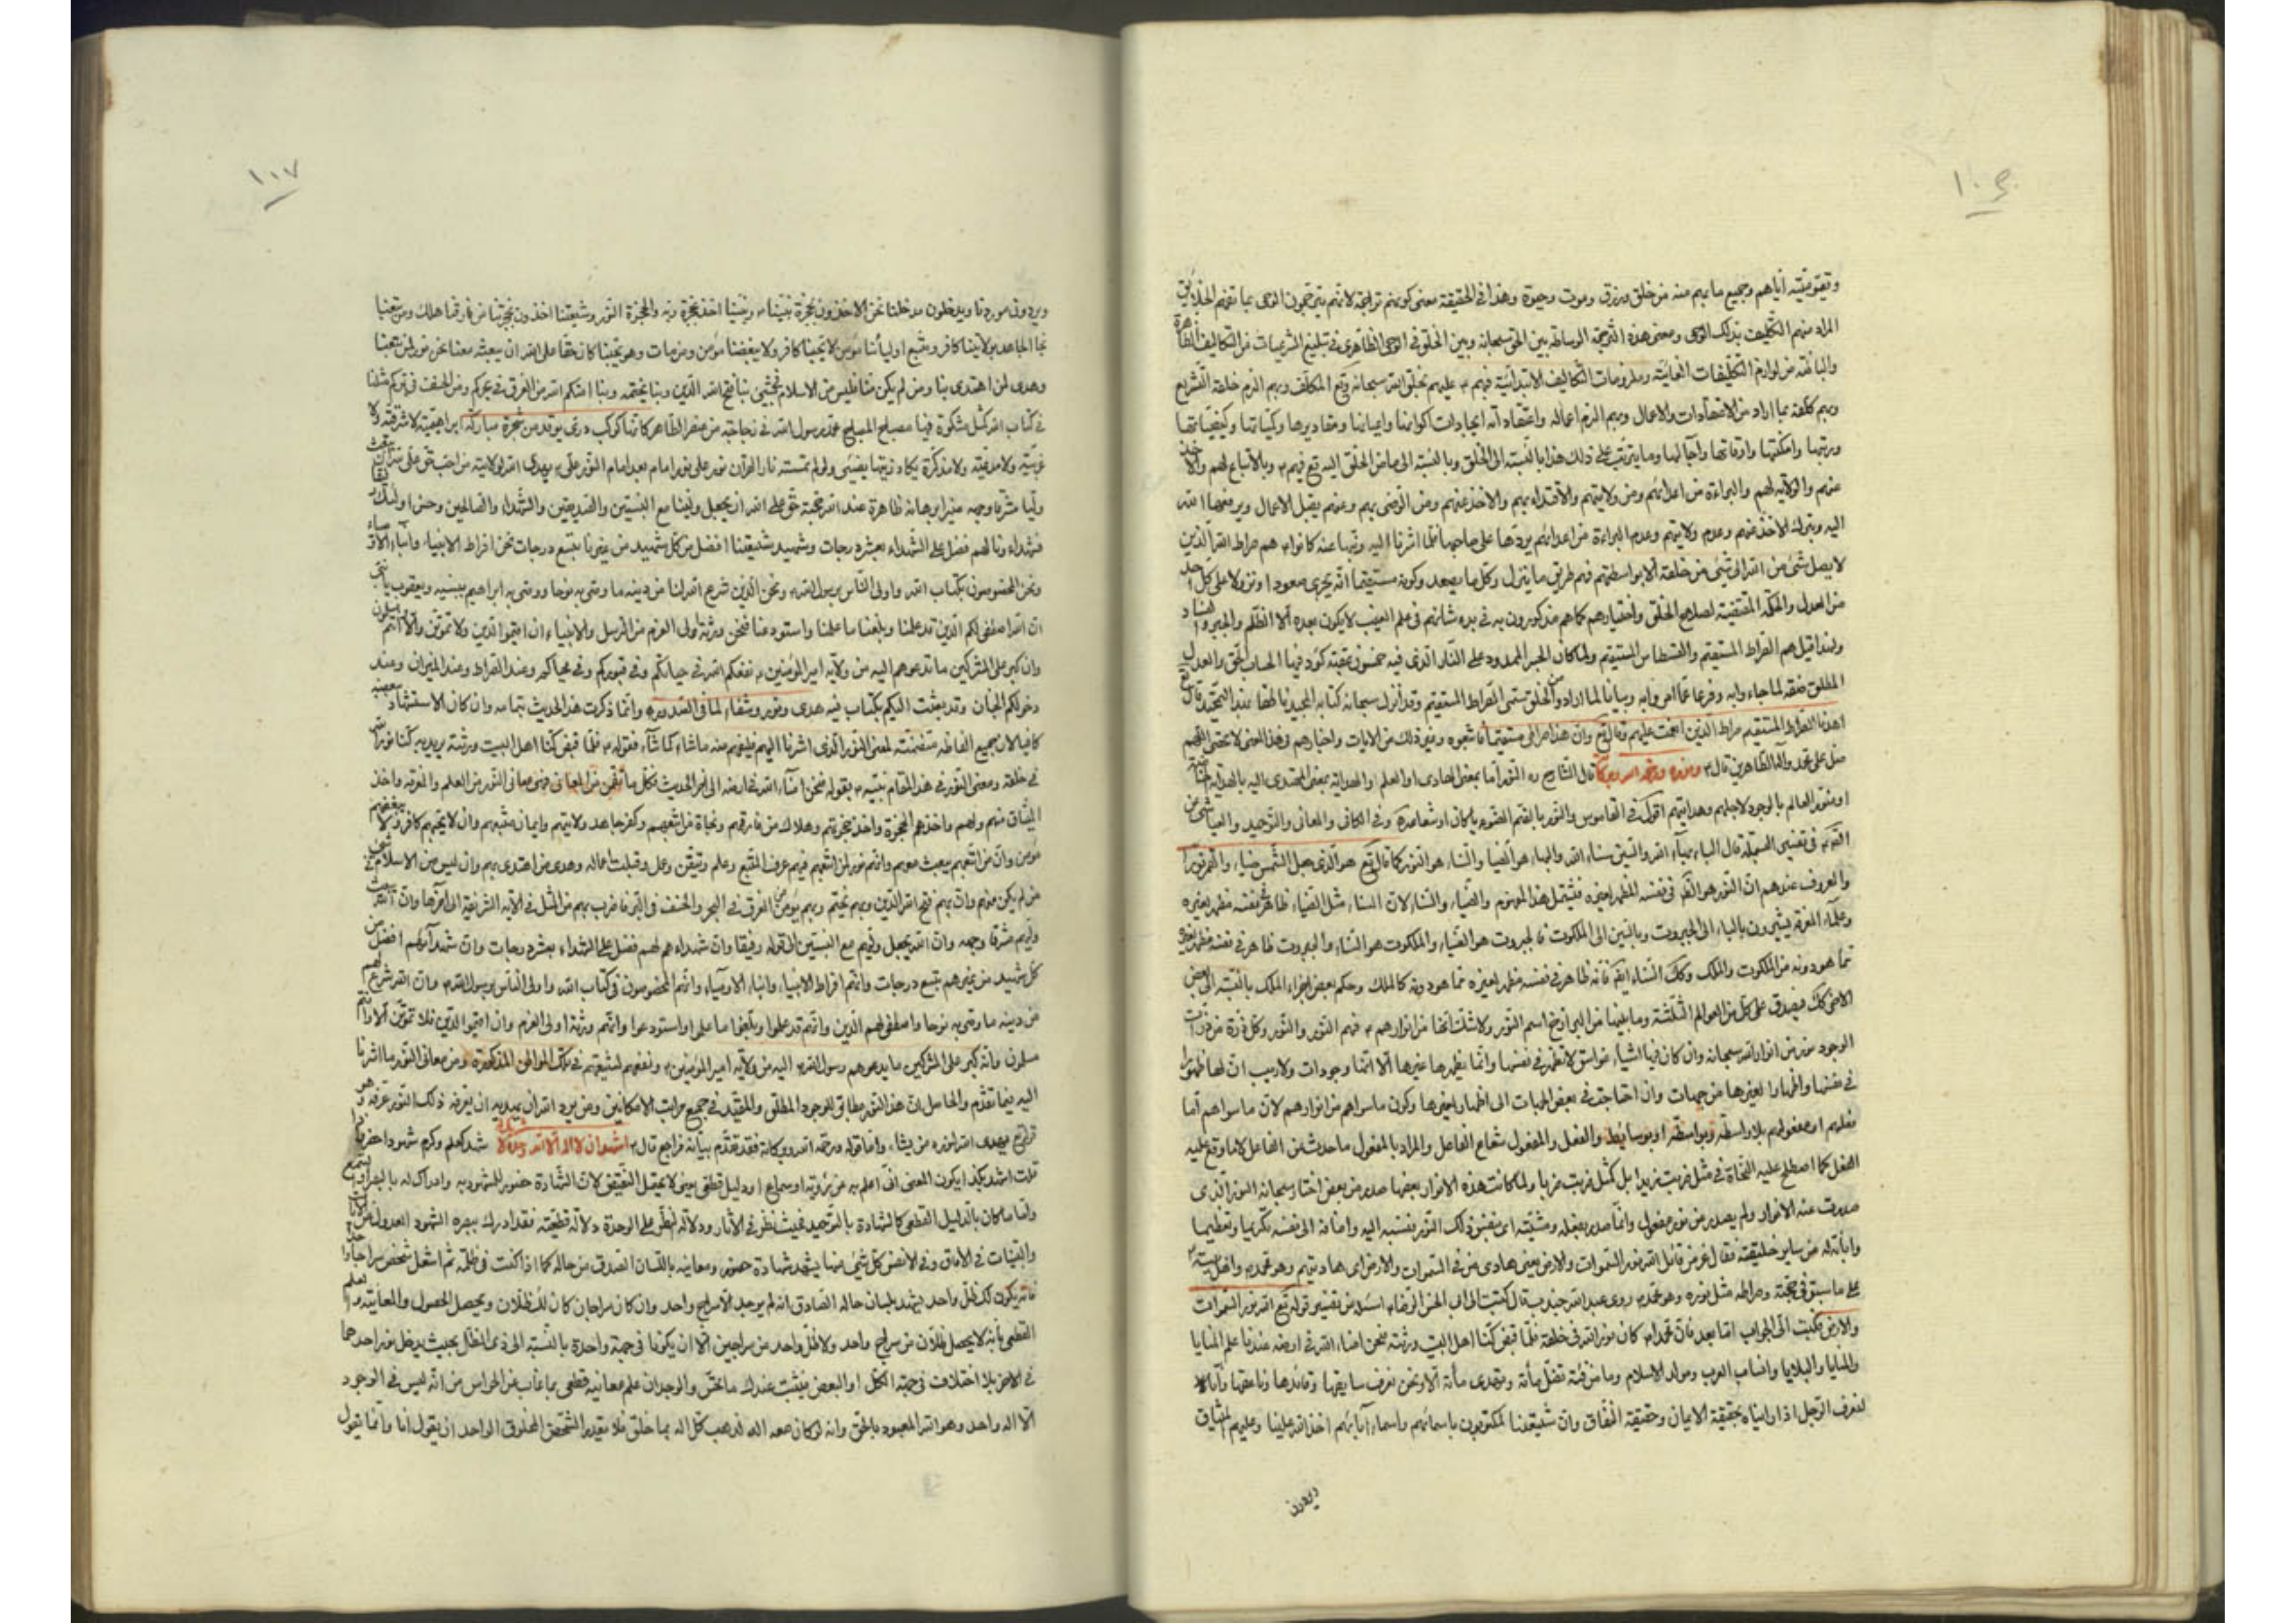 ١٠٦
وتقويته اياهم وجميع ما بهم منه من خلق ورزق وموت وحيوة وهذا في الحقيقة معنى كونهم تراجمة لانهم يترجمون الوحى بما تفهم الخلايق
المراد منهم التكليف بذلك الوحى ومعنى هذه الترجمة الوساطة بين الحق سبحانه وبين الخلق في الوحى الظاهرى في تبليغ الشرعيات من التكاليف الظاهرة
والباطنة من لوازم التكليفات وملزومات التكاليف الابتدائية فبهم ع عليهم تخلق الله سبحانه وتع المكلف وبهم الزم خلقه التشريع
وبهم كلفه بما اراد من الاعتقادات والاعمال وبهم الزم اعماله واعتقاداته ايجادات اكوانها واعيانها ومقاديرها وكمياتها وكيفياتها
ورتبها وامكنتها واوقاتها وآجالها وما يترتب على ذلك هذا بالنسبة الى الخلق وبالنسبة الى ما من الخلق اليه تع فبهم وبالاتباع لهم والاخذ
عنهم والولاية لهم والبراءة من اعدائهم ومن ولايتهم والاقتداء بهم والاخذ عنهم ومن الرضى بهم وعنهم يقبل الاعمال ويرفعها الله
اليه وبترك الاخذ عنهم وعدم ولايتهم وعدم البراءة من اعدائهم يردها على صاحبها فلما اشرنا اليه ونبها عنه كانوا هم صراط الله الذين
لا يصل شئ من الله الى شئ من خلقه الا بواسطتهم فهم طريق ما ينزل وكل ما يصعد وكونه مستقيما انه يجرى صعودا ونزولا على كل احد
من العدل والحكمة المقتضية لصلاح الخلق واختيارهم كما هم مذكورون به في بدء شانهم في علم الغيب لا يكون بعده الا الظلم والجبر
ولهذا قيل هم الصراط المستقيم والقسطاس المستقيم ولما كان الجسر الممدود على النار الذى فيه خمسون عقبة كؤد فيها الحساب الحق والعدل
اهدنا الصراط المستقيم صراط الذين انعمت عليهم وقال تع وان هذا صراطى مستقيما فاتبعوه وغير ذلك من الايات واخبارهم وهذا المعنى لا تحصى اللهم
صل على محمد وآله الطاهرين قال ع ونوره ورحمة الله وبركاته قال الشارح ره النور اما بمعنى الهادى او العلم او الهداية بمعنى المهتدى اليه بالهداية
او منور العالم بالوجود لاجلهم وهدايتهم اقول في القاموس والنور بالضم الضوء ايا كان او شعاعه وفي الكافي والمعاني والتوحيد والعياشى عن
في تفسير البسملة قال الباء بهاء الله والسين سناء الله والبهاء هو الضياء والسناء هو النور كما قال تع هو الذى جعل الشمس ضياء والقمر نورا
والمعروف عندهم ان النور هو الظاهر في نفسه المظهر لغيره فيشمل هذا المفهوم والضياء والسناء لان السناء مثل الضياء ظاهر في نفسه مظهر لغيره
وعلماء المعرفة يشيرون بالباء الى الجبروت وبالسين الى الملكوت فالجبروت هو الضياء والملكوت هو السناء والجبروت ظاهر في نفسه مظهر لغيره
مما هو دونه من الملكوت والملك وكذلك السناء ايضا فانه ظاهر في نفسه مظهر لغيره مما هو دونه كالملك وحكم بعض اجزاء الملك بالنسبة الى بعض
الوجود نور من انوار الله سبحانه وان كان فيها اشياء غواسق لا تظهر في نفسها وانما يظهرها غيرها الا انها وجودات ولا ريب ان لها ظهورا
في نفسها واظهارا لغيرها من جهات وان احتاجت في بعض الجهات الى اظهار لغيرها وكون ما سواهم من انوارهم لان ما سواهم اما
فعلهم او مفعولهم بلا واسطة وبواسطة او بوسايط والفعل والمفعول شعاع الفاعل والمراد بالمفعول ما حدث من الفاعل لا ما وقع عليه
الفعل كما اصطلح عليه النحاة في مثل ضربت زيدا بل كمثل ضربت ضربا ولما كانت هذه الانوار بعضها صدر من بعض اختار سبحانه النور الذى
صدرت عنه الانوار ولم يصدر من نور مفعول وانما صدر بفعله ومشيته اى بنفس ذلك النور فنسبه اليه واضافه الى نفسه تكريما وتعظيما
وابانة له من ساير خليقته فقال عز من قائل الله نور السموات والارض يعنى هادى من في السموات والارض اى هاديهم وهو محمد
على ما سبق في محبة وصراطه مثل نوره وهو محمد روى عبد الله جندب قال كتبت الى ابى الحسن الرضا اسئله عن تفسير قوله تع الله نور السموات
والارض فكتب الى الجواب اما بعد فان محمدا كان نور الله في خلقه فلما قبض كنا اهل البيت ورثته فنحن امناء الله في ارضه عندنا علم المنايا
والبلايا وانساب العرب ومولد الاسلام وما من فئة تضل مأة وتهدى مأة الا ونحن نعرف سايقها وقائدها وناعقها وانا
لنعرف الرجل اذا رايناه بحقيقة الايمان وحقيقة النفاق وان شيعتنا لمكتوبون باسمائهم واسماء آبائهم اخذ الله علينا وعليهم الميثاق
ويردون
١٠٧
ويردون موردنا ويدخلون مدخلنا نحن الاخذون بحجزة نبينا ونبينا اخذ بحجزة ربه والحجزة النور وشيعتنا اخذون بحجزتنا من فارقنا هلك ومن تبعنا
نجا الجاحد بولايتنا كافر ومتبع اوليائنا مؤمن لا يحبنا كافر ولا يبغضنا مؤمن ومن مات وهو يحبنا كان حقا على الله ان يبعثه معنا نحن نور لمن تبعنا
وهدى لمن اهتدى بنا ومن لم يكن منا فليس من الاسلام في شئ بنا فتح الله الدين وبنا يختمه وبنا امنكم الله من الغرق في بحركم ومن الخسف في بركم مثلنا
في كتاب الله كمثل مشكوة فيها مصباح المصباح محمد رسول الله في زجاجة من عنصر الطاهر كانها كوكب درى يوقد من شجرة مباركة ابراهيمية لا شرقية ولا
غربية ولا مدعية ولا منكرة يكاد زيتها يضئ ولو لم تمسسه نار القرآن نور على نور امام بعد امام النور على يهدى الله لولايته من احب حق على الله ان يبعث
ولينا مشرقا وجهه منيرا برهانه ظاهرة عند الله حجته حق على الله ان يجعل ولينا مع النبيين والصديقين والشهداء والصالحين وحسن اولئك رفيقا
فشهداءنا لهم فضل على الشهداء بعشر درجات وشهيد شيعتنا افضل من كل شهيد من غيرنا بتسع درجات نحن افراط الانبياء وابناء الاوصياء
ونحن المخصوصون بكتاب الله واولى الناس برسول الله ونحن الذين شرع الله لنا من دينه ما وصى به نوحا ووصى به ابراهيم بنيه ويعقوب يا بنى
ان الله اصطفى لكم الدين قد علمنا وبلغنا ما علمنا واستودعنا فنحن ورثة اولى العزم من الرسل والانبياء ان اقيموا الدين ولا تموتن الا وانتم مسلمون
وان كبر على المشركين ما تدعوهم اليه من ولاية امير المؤمنين نفعكم الله في حياتكم وفي قبوركم وفي محياكم وعند الصراط وعند الميزان وعند
دخولكم الجنان وقد بعثت اليكم بكتاب فيه هدى ونور وشفاء لما في الصدور وانما ذكرت هذا الحديث بتمامه وان كان الاستشهاد ببعضه
كافيا لان جميع الفاظه متضمنة لمعنى النور الذى اشرنا اليهم فليفهم منه ما شاء كما شاء فقوله فلما قبض كنا اهل البيت ورثته يريد به كنا نور الله
في خلقه ومعنى النور في هذا المقام نبه بقوله فنحن امناء الله في ارضه الى اخر الحديث فكل ما تضمن من المعانى فهى معانى النور من العلم والمعرفة واخذ
الميثاق منهم ولهم واخذهم الحجزة واخذ بحجزتهم وهلاك من فارقهم ونجاة من اتبعهم وكفر جاحد ولايتهم وايمان متبعهم وان لا يحبهم كافر ولا يبغضهم
مؤمن وان من اتبعهم يبعث معهم وانهم نور لمن اتبعهم فبهم عرف المتبع وعلم وتيقن وعمل وقبلت اعماله وهدى من اهتدى بهم وان ليس من الاسلام في شئ
من لم يكن منهم وان بهم فتح الله الدين وبهم يختم وبهم يؤمن الغرق في البحر والخسف في البر فما ضرب بهم من المثل في الاية الشريفة الى آخرها وان الله يبعث
وليهم مشرقا وجهه وان الله يجعل وليهم مع النبيين الى قوله رفيقا وان شهداءهم لهم فضل على الشهداء بعشر درجات وان شهدآءهم افضل من
كل شهيد من غيرهم بتسع درجات وانهم افراط الانبياء وابناء الاوصياء وانهم المخصوصون في كتاب الله واولى الناس برسول الله وان الله شرع لهم
من دينه ما وصى به نوحا واصطفى لهم الدين وانهم قد علموا وبلغوا ما علموا واستودعوا وانهم ورثة اولى العزم وان اقيموا الدين فلا تموتن الا وانتم
مسلمون وانه كبر على المشركين ما يدعوهم رسول الله اليه من ولاية امير المؤمنين ونفعهم لشيعتهم في تلك المواطن المذكورة ومن معانى النور ما اشرنا
اليه فيما تقدم والحاصل ان هذا النور مطابق للوجود المطلق والمقيد في جميع مراتب الامكانين ومن يرد الله ان يهديه ان يعرفه ذلك النور عرفه وهو
قوله تع يهدى الله لنوره من يشاء واما قوله ورحمة الله وبركاته فقد تقدم بيانه فراجع قال ع اشهد ان لا اله الا الله وحده لا شريك له شهد كعلم وكرم شهودا حضر فاذا
قلت اشهد بكذا يكون المعنى انى اعلم به عن رؤية او سماع او دليل قطعى بمعنى لا يحتمل النقيض لان الشهادة حضور المشهود به وادراك له بالبصر او السمع
واما ما كان بالدليل القطعى كالشهادة بالتوحيد فحيث نظر في الآثار ودلالة تنظر على الوحدة دلالة قطعية فقد ادرك ببصره الشهود العدول من الآيات
والبينات في الافاق وفي الانفس كل شئ منها يشهد شهادة حضور ومعاينة باللسان الصدق من حاله كما اذا كنت في ظلمة ثم اشعل شخص سراجا واحدا
فانه يكون لك ظل واحد يشهد بلسان حاله الصادق انه لم يوجد الا سراج واحد وان كان سراجان كان لك ظلان ويحصل الحصول والمعاينة والعلم
القطعى بانه لا يحصل ظلان من سراج واحد ولا ظل واحد من سراجين الا ان يكونا في جهة واحدة بالنسبة الى ذى الظل بحيث يدخل نور احدهما
في الاخر بلا اختلاف في جهة الكل او البعض فيثبت عندك ما تحس والوجدان علم معانيه قطعى بما غاب عن الحواس من انه ليس في الوجود
الا اله واحد وهو الله المعبود بالحق وانه لو كان معه اله لذهب كل اله بما خلق فلا يقدر الشخص المخلوق الواحد ان يقول انا وانما يقول